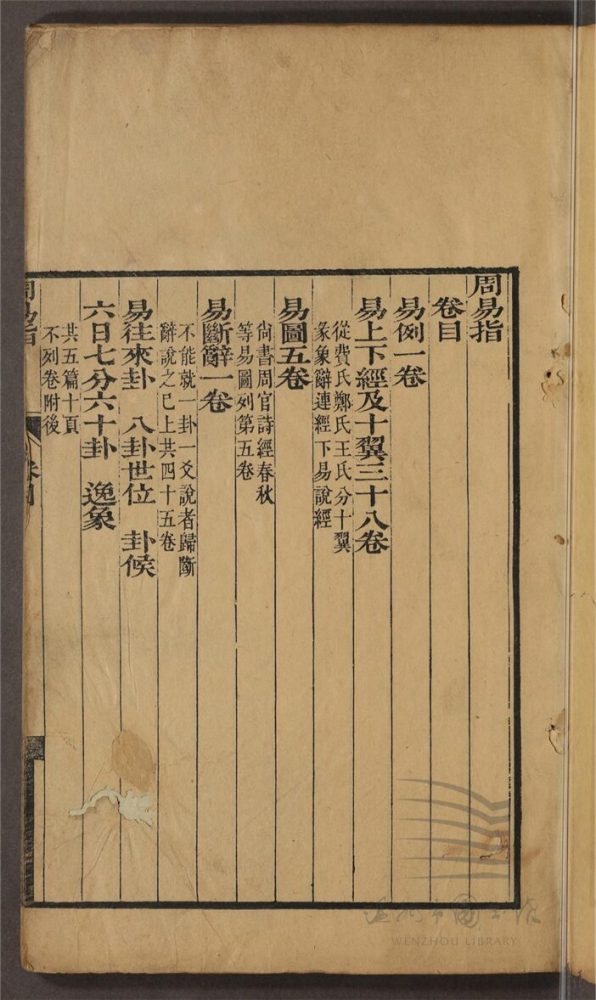 周易指
卷目
易例一卷
易上下經及十翼三十八卷
從費氏鄭氏王氏分十翼
彖象辭連經下易說經
易圖五卷
尙書周官詩經春秋
等易圖列第五卷
易斷辭一卷
不能就一卦一爻說者歸斷
辭說之已上共四十五卷
易往來卦 八卦世位 卦候
六日七分六十卦 逸象
共五篇十頁
不列卷附後
周易指
卷目
WENZHOU LIBRARY